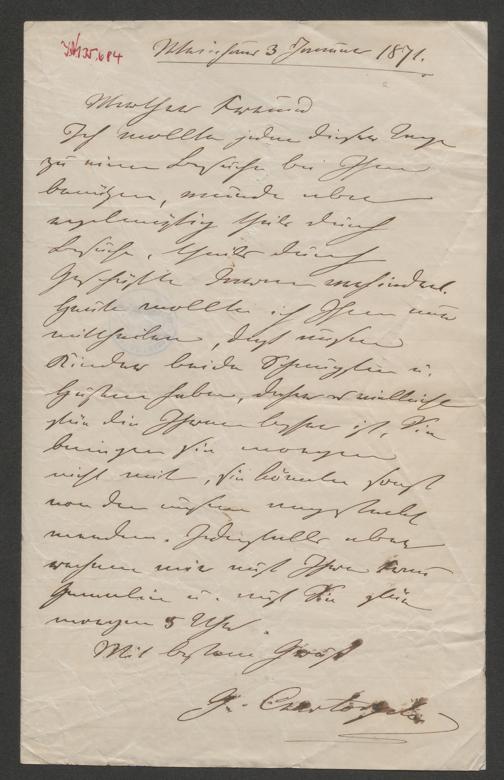 I.N. 135.684
3 Januar 1871.
Werther Freund
Ich wollte jeden dieser Tage
zu einem Besuche bei Ihnen
benützen, wurde aber
regelmäßig theils durch
Besuche, theils durch
Geschäfte daran verhindert.
Heute wollte ich Ihnen nur
mittheilen, daß unsere
Kinder beide Schnupfen u.
Husten haben, daher es vielleicht
für die Ihren besser ist, Sie
bringen sie morgen
nicht mit, sie könnten sonst
von den unsern angesteckt
werden. Jedenfalls aber
rechnen wir auf Ihre Frau
Gemalin u. auf Sie für
morgen 5 Uhr.
Mit bestem Gruß
Czartoryski